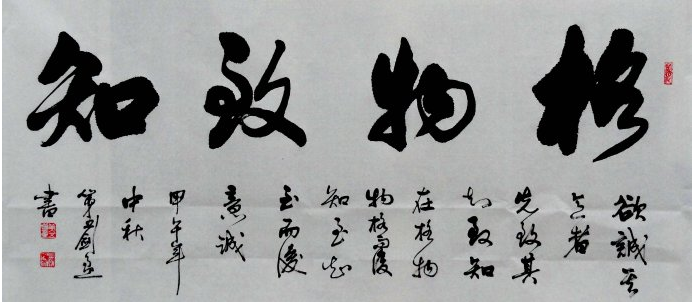 格物致知
欲誠其
意者
先致其
知致知
在格物
物格而後
知至知
至而後
意誠
甲午年
中秋
第五劍
書